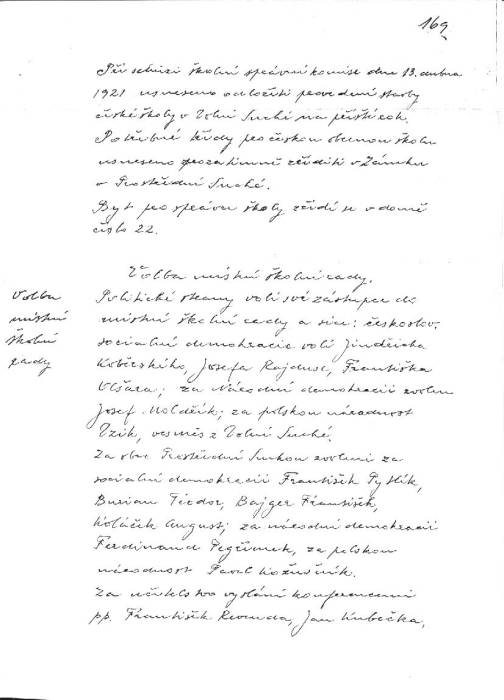 169
Při schůzi školní správní komise dne 13. dubna
1921 usneseno odložiti provedení stavby
české školy v Dolní Suché na příští rok.
Potřebné třídy pro českou obecnou školu
usneseno prozatimně zříditi v Zámku
v Prostřední Suché.
Byt pro správce školy zřídí se v domě
číslo 22.
Volba místní školní rady.
Volba
místní
školní
rady
Politické strany volí své zástupce do
místní školní rady a sice: českoslov.
sociální demokracie volí Jindřicha
Koběrského, Josefa Rajdusa, Františka
; za Národní demokracii zvolen
Josef Moldřík; za polskou národnost
Uzik, vesměs z Dolní Suché.
Za obec Prostřední Suchou zvoleni za
sociální demokracii František Pytlík,
Burian Teodor, Bajger František,
Koláček August; za národní demokracii
Ferdinand Pegřimek, za polskou
národnost Pavel Kožušník.
Za učitelstvo vysláni konferencemi
pp. František Revenda, Jan Kubečka,